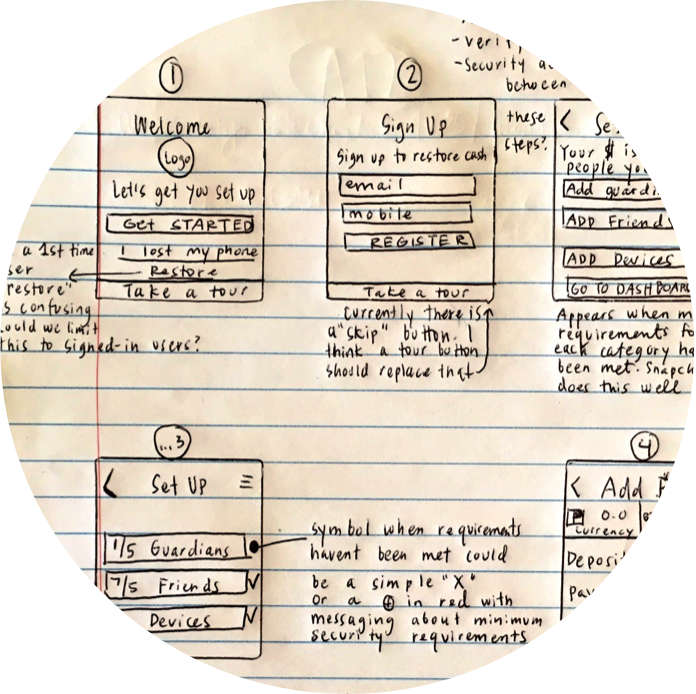 - Verify
- Security
between
these
steps?
1
Welcome
Logo
Let's get you set up
GET STARTED
I lost my phone
Restore
Take a tour
a 1st time
restore"
confusing
could we limit
this to signed-in users?
2
Sign Up
Sign up to restore cash
email
mobile
REGISTER
Take a tour
Currently there is
a "skip" button. I
think a tour button
should replace that
<
Your $ is
people
Add
ADD Friends
ADD Devices
GO TO DASHBOARD
Appears when
requirements
each category
been met.
does this well
...3
< Set Up ≡
1/5 Guardians
7/5 Friends ✓
Devices ✓
symbol when requirements
havent been met could
be a simple "X"
or a ⊕ in red with
messaging about minimum
security requirements
4
< Add
0.0
Currency